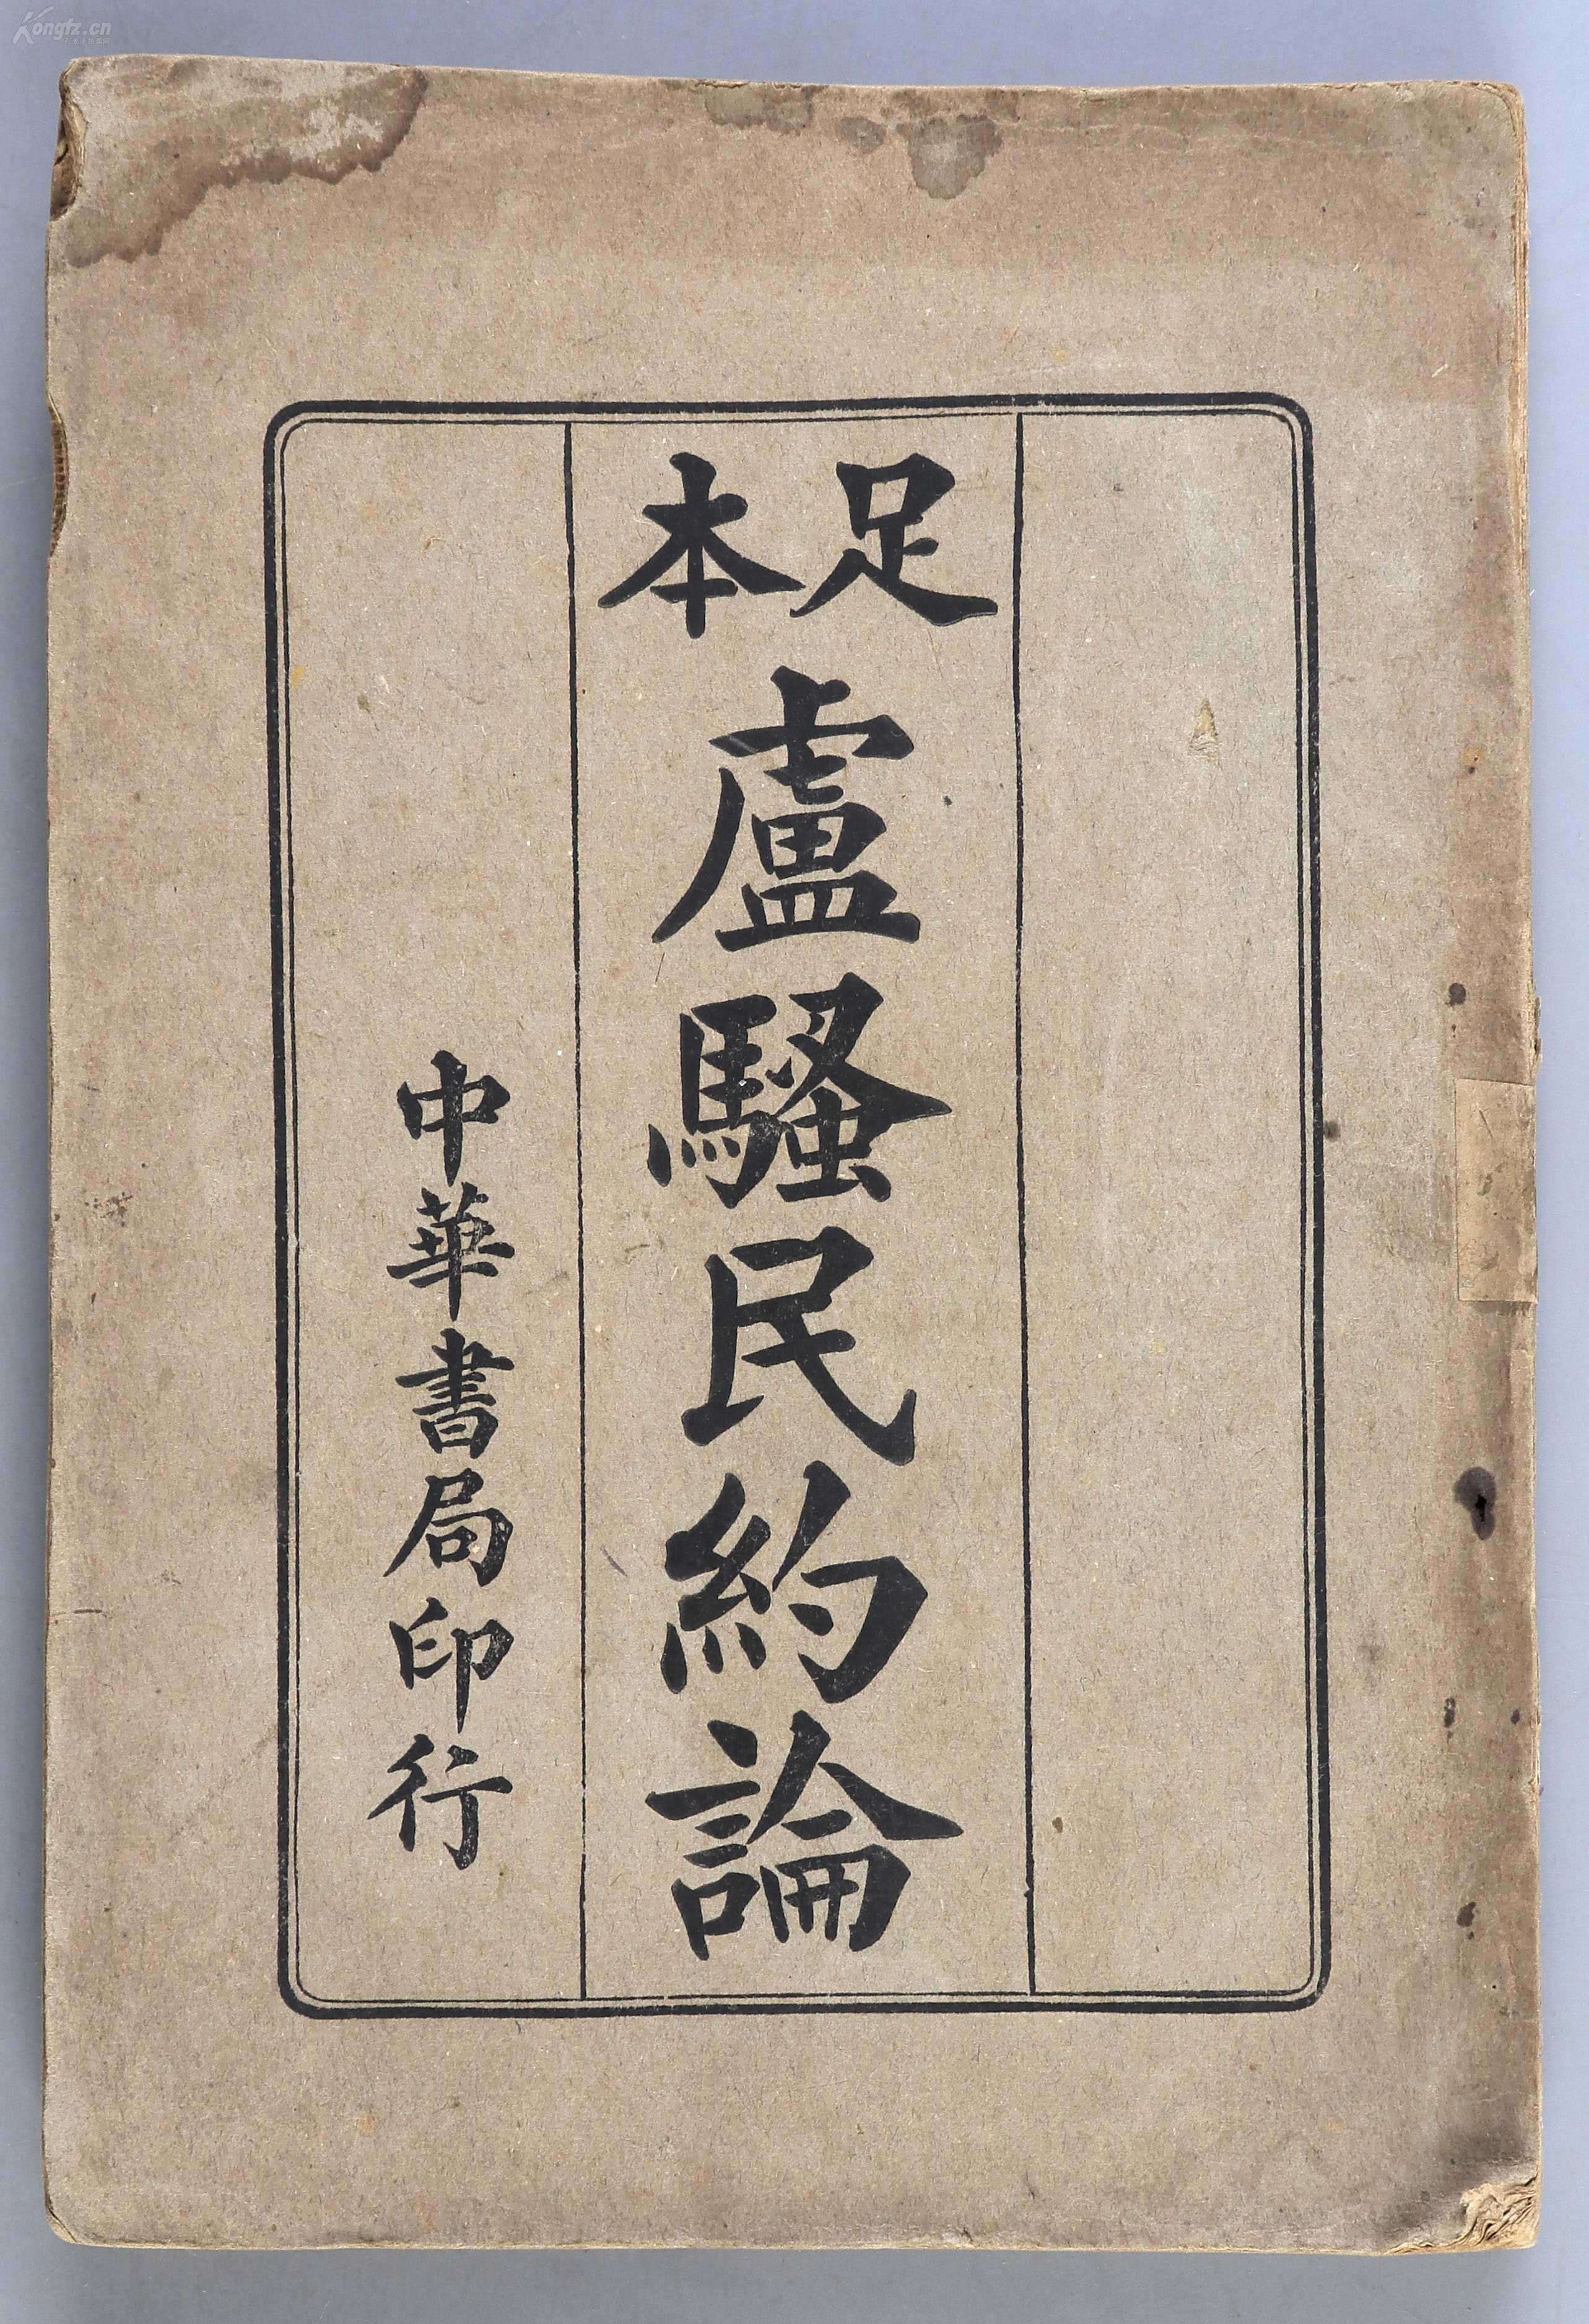 足本
盧騷民約論
中華書局印行
Kongfz.cn